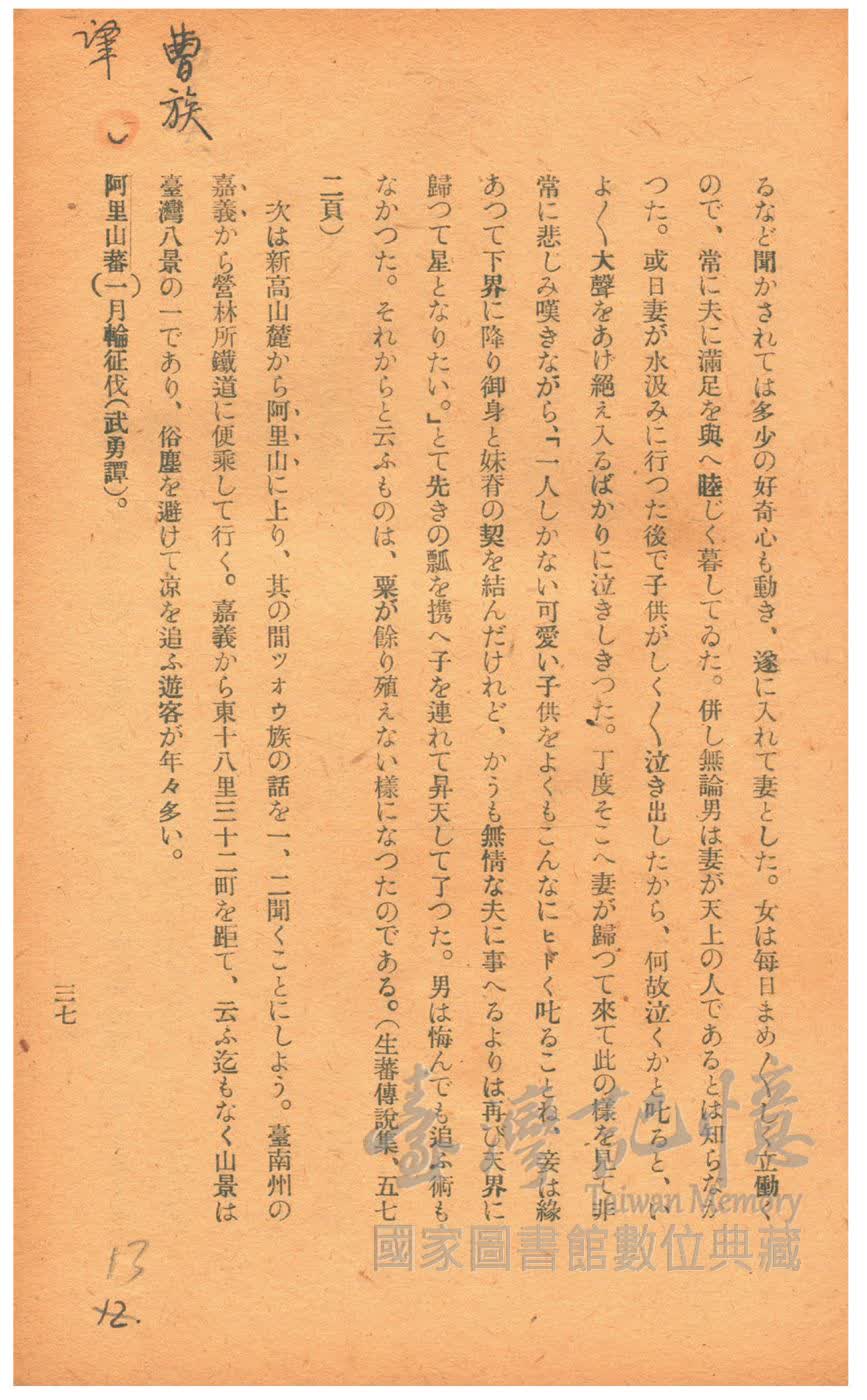 るなど聞かされては多少の好奇心も動き、遂に入れて妻とした。女は每日まめ〱しく立働く
ので、常に夫に滿足を與へ睦じく暮してゐた。併し無論男は妻が天上の人であるとは知らなか
つた。或日妻が水汲みに行つた後で子供がしく〱泣き出したから、何故泣くかと叱ると、い
よ〱大聲をあげ絕え入るばかりに泣きしきつた。丁度そこへ妻が歸つて來て此の樣を見て非
常に悲しみ嘆きながら、「一人しかない可愛い子供をよくもこんなにヒドく叱ることね、妾は緣
あつて下界に降り御身と妹脊の契を結んだけれど、かうも無情な夫に事へるよりは再び天界に
歸つて星となりたい。」とて先きの瓢を携へ子を連れて昇天して了つた。男は悔んでも追ふ術も
なかつた。それからと云ふものは、粟が餘り殖えない樣になつたのである。(生蕃傳說集、五七
二頁)
次は新高山麓から阿里山に上り、其の間ツォウ族の話を一、二聞くことにしよう。臺南州の
嘉義から營林所鐵道に便乘して行く。嘉義から東十八里三十二町を距て、云ふ迄もなく山景は
臺灣八景の一であり、俗塵を避けて凉を追ふ遊客が年々多い。
阿里山蕃(一)月輪征伐(武勇譚)。
三七
曹族
譯
13
12.
臺灣記憶
Taiwan Memory
國家圖書館數位典藏